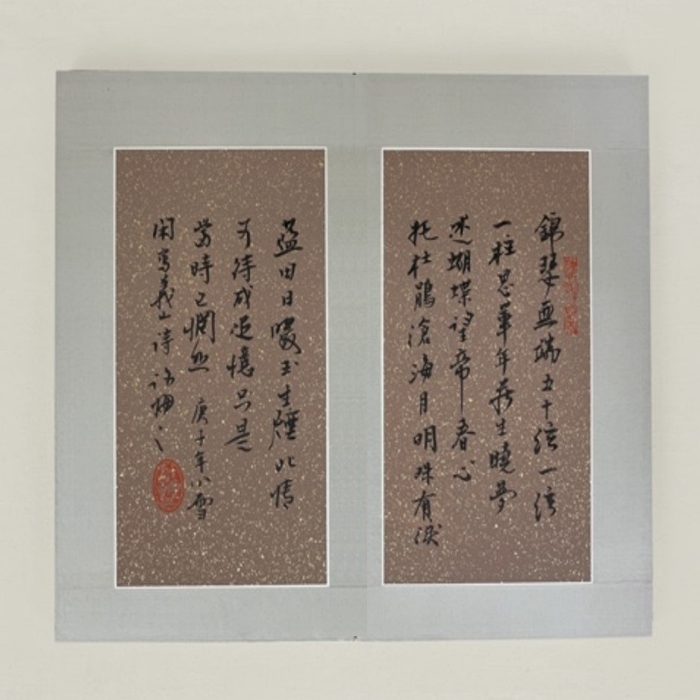 錦瑟無端五十弦一弦
一柱思華年莊生曉夢
迷蝴蝶望帝春心
托杜鵑滄海月明珠有淚
藍田日暖玉生煙此情
可待成追憶只是
當時已惘然 庚子年小雪
閑寫義山詩